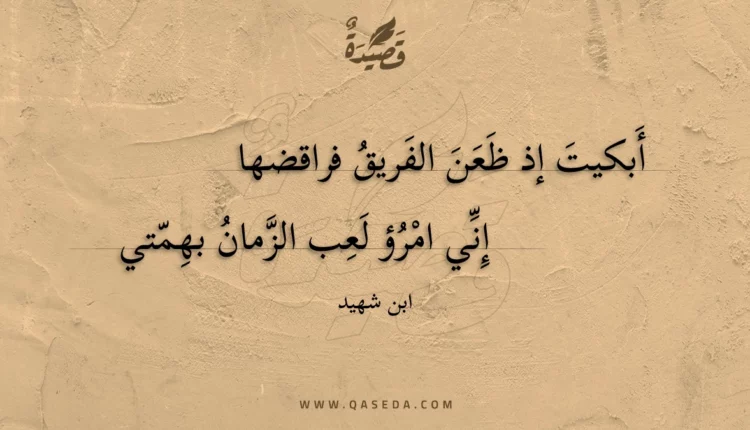 قَصِيْدَةٌ
أَبكيتَ إذ ظَعَنَ الفَريقُ فراقضها
إِنِّي امْرُؤ لَعِب الزَّمانُ بهِمّتي
ابن شهيد
WWW.QASEDA.COM